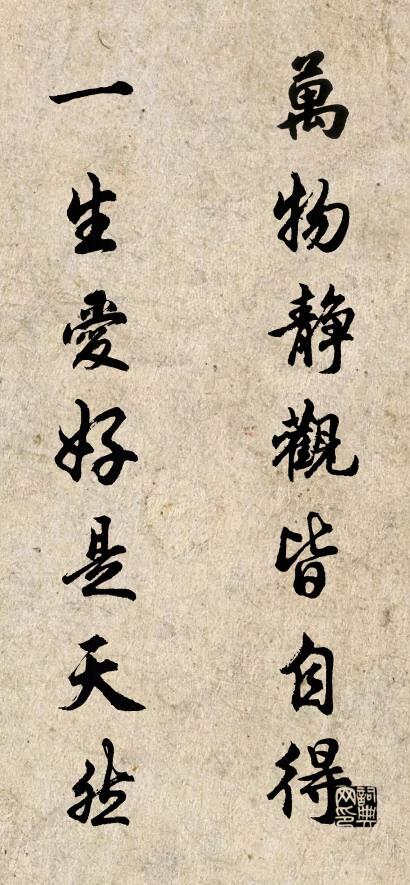 萬物静觀皆自得
一生愛好是天然
詞典网印